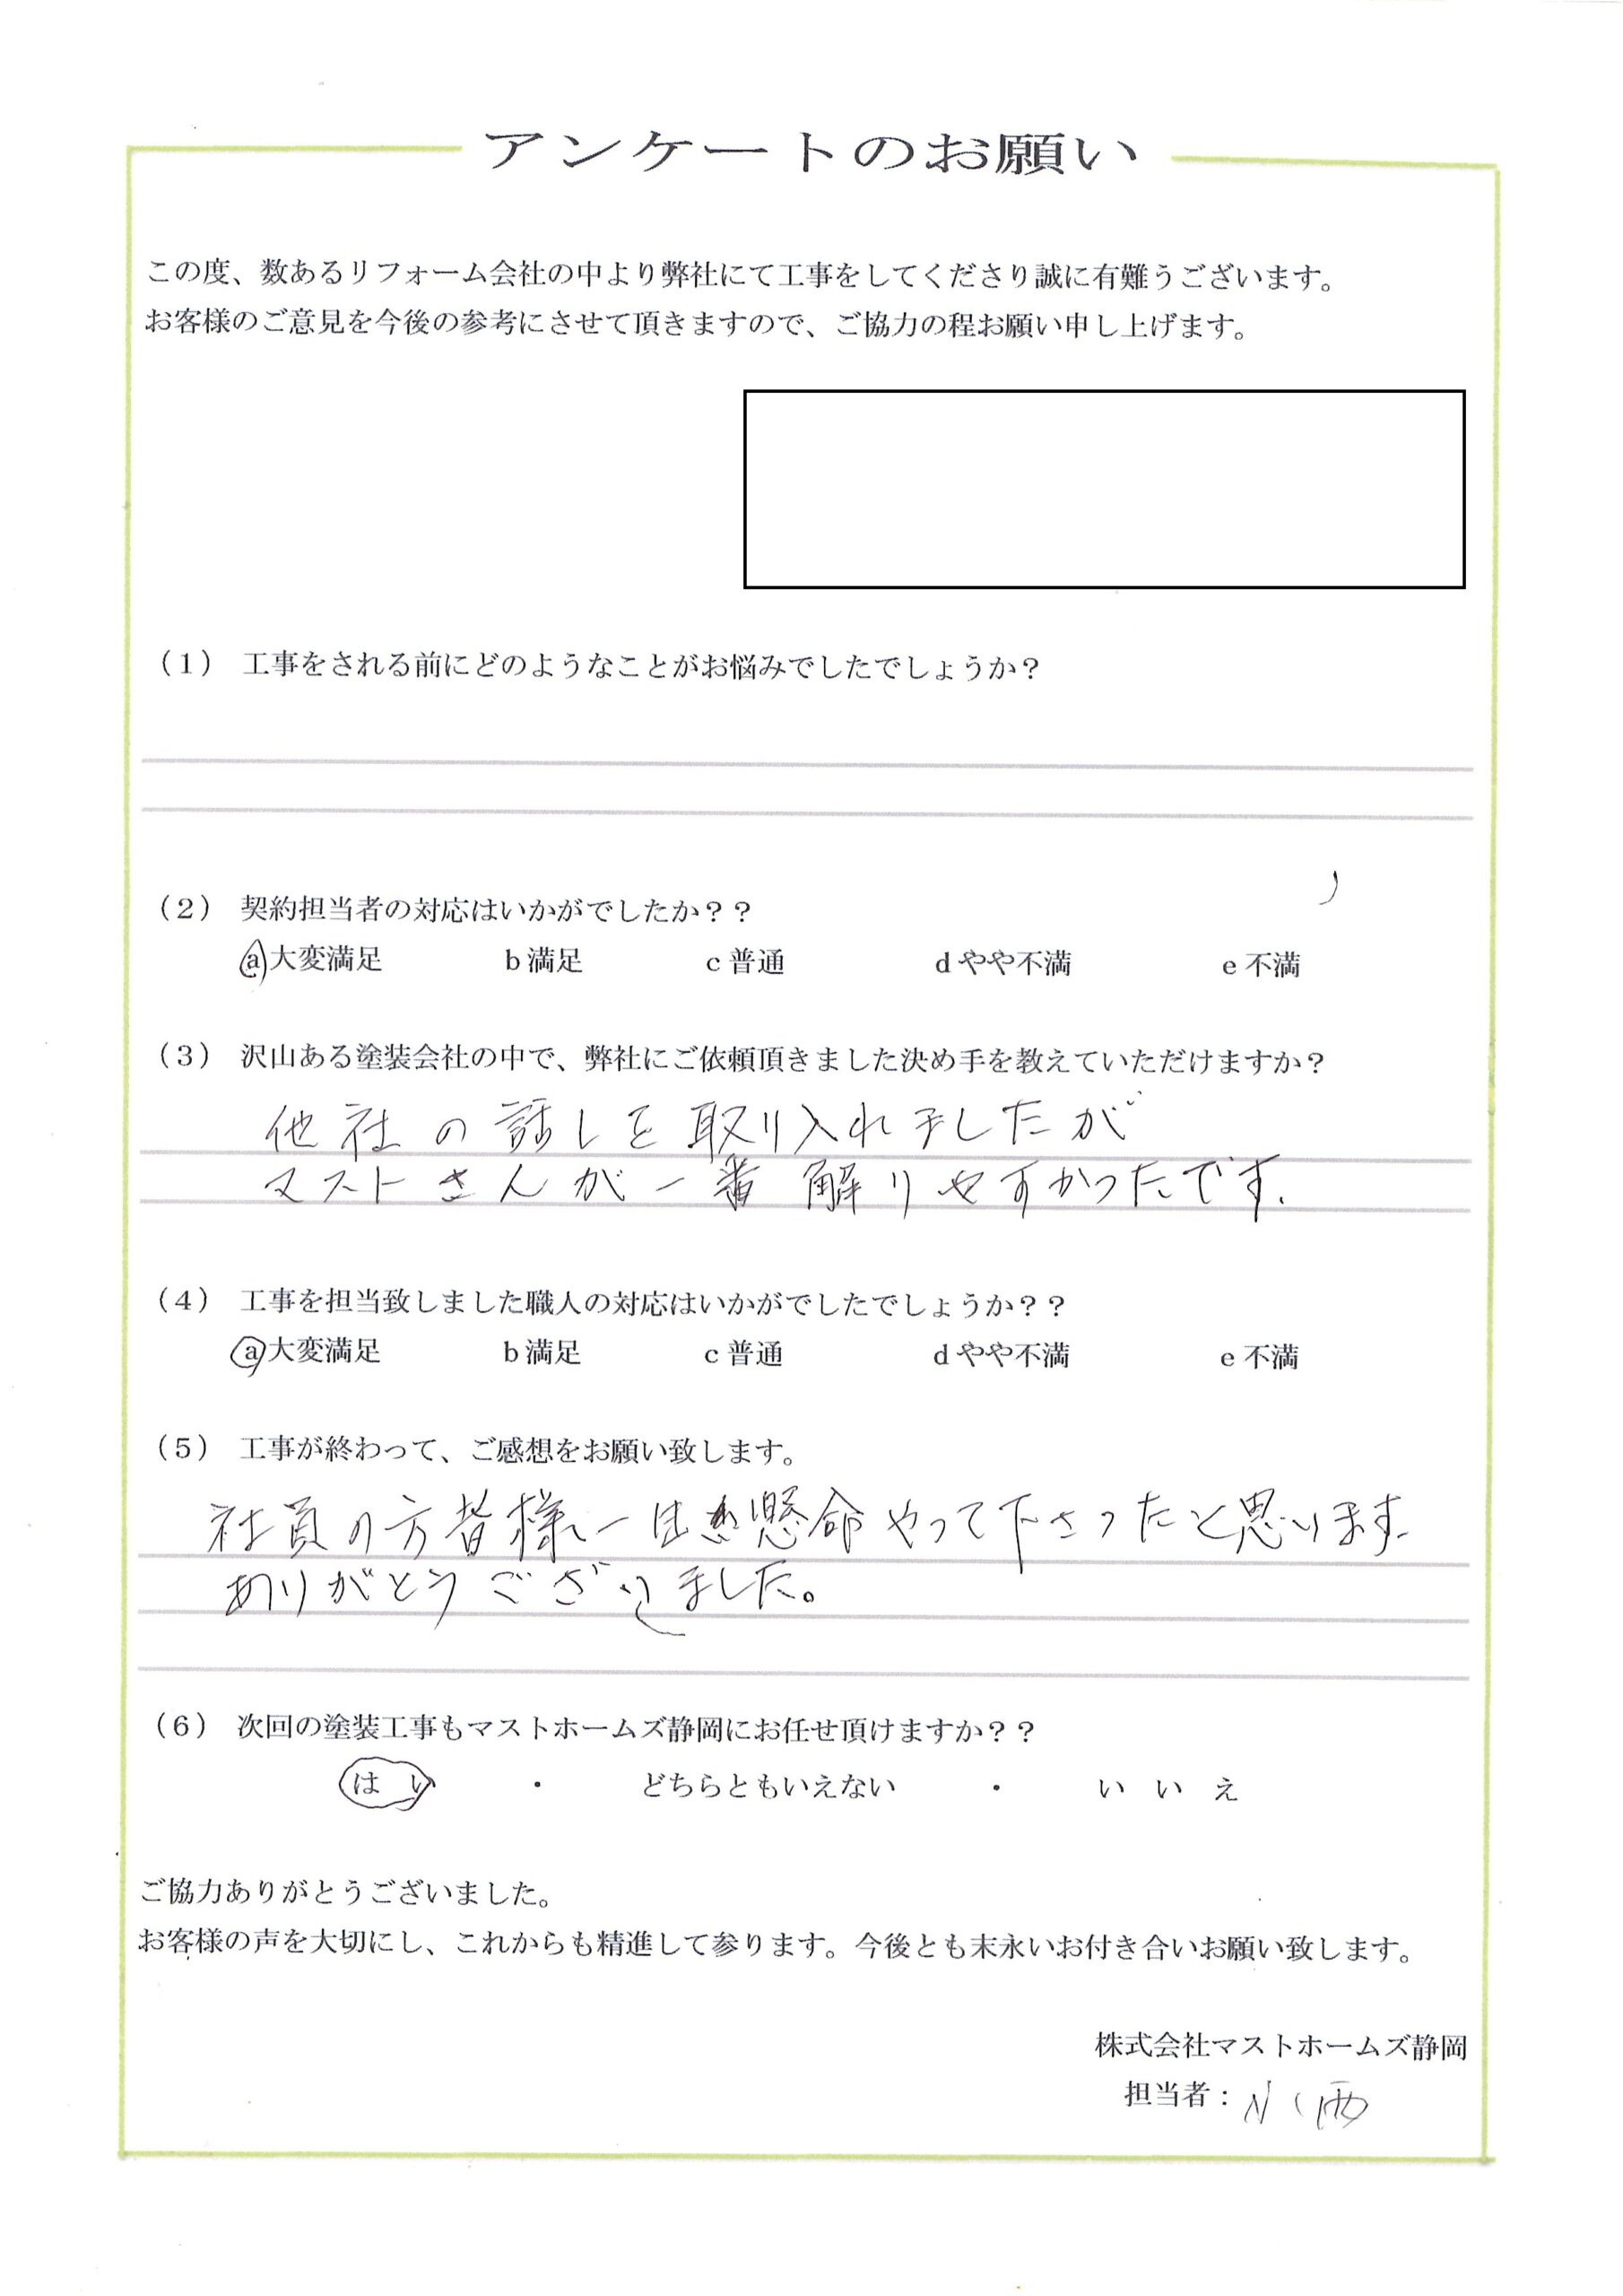 アンケートのお願い
この度、数あるリフォーム会社の中より弊社にて工事をしてくださり誠に有難うございます。
お客様のご意見を今後の参考にさせて頂きますので、ご協力の程お願い申し上げます。
（1） 工事をされる前にどのようなことがお悩みでしたでしょうか？
（2） 契約担当者の対応はいかがでしたか？？
a 大変満足 b 満足 c 普通 d やや不満 e 不満
（3） 沢山ある塗装会社の中で、弊社にご依頼頂きました決め手を教えていただけますか？
他社の話しを取り入れましたが
マストさんが一番解りやすかったです.
（4） 工事を担当致しました職人の対応はいかがでしたでしょうか？？
a 大変満足 b 満足 c 普通 d やや不満 e 不満
（5） 工事が終わって、ご感想をお願い致します。
社員の方皆様一生懸命やって下さったと思います.
ありがとうございました。
（6） 次回の塗装工事もマストホームズ静岡にお任せ頂けますか？？
はい ・ どちらともいえない ・ いいえ
ご協力ありがとうございました。
お客様の声を大切にし、これからも精進して参ります。今後とも末永いお付き合いお願い致します。
株式会社マストホームズ静岡
担当者：